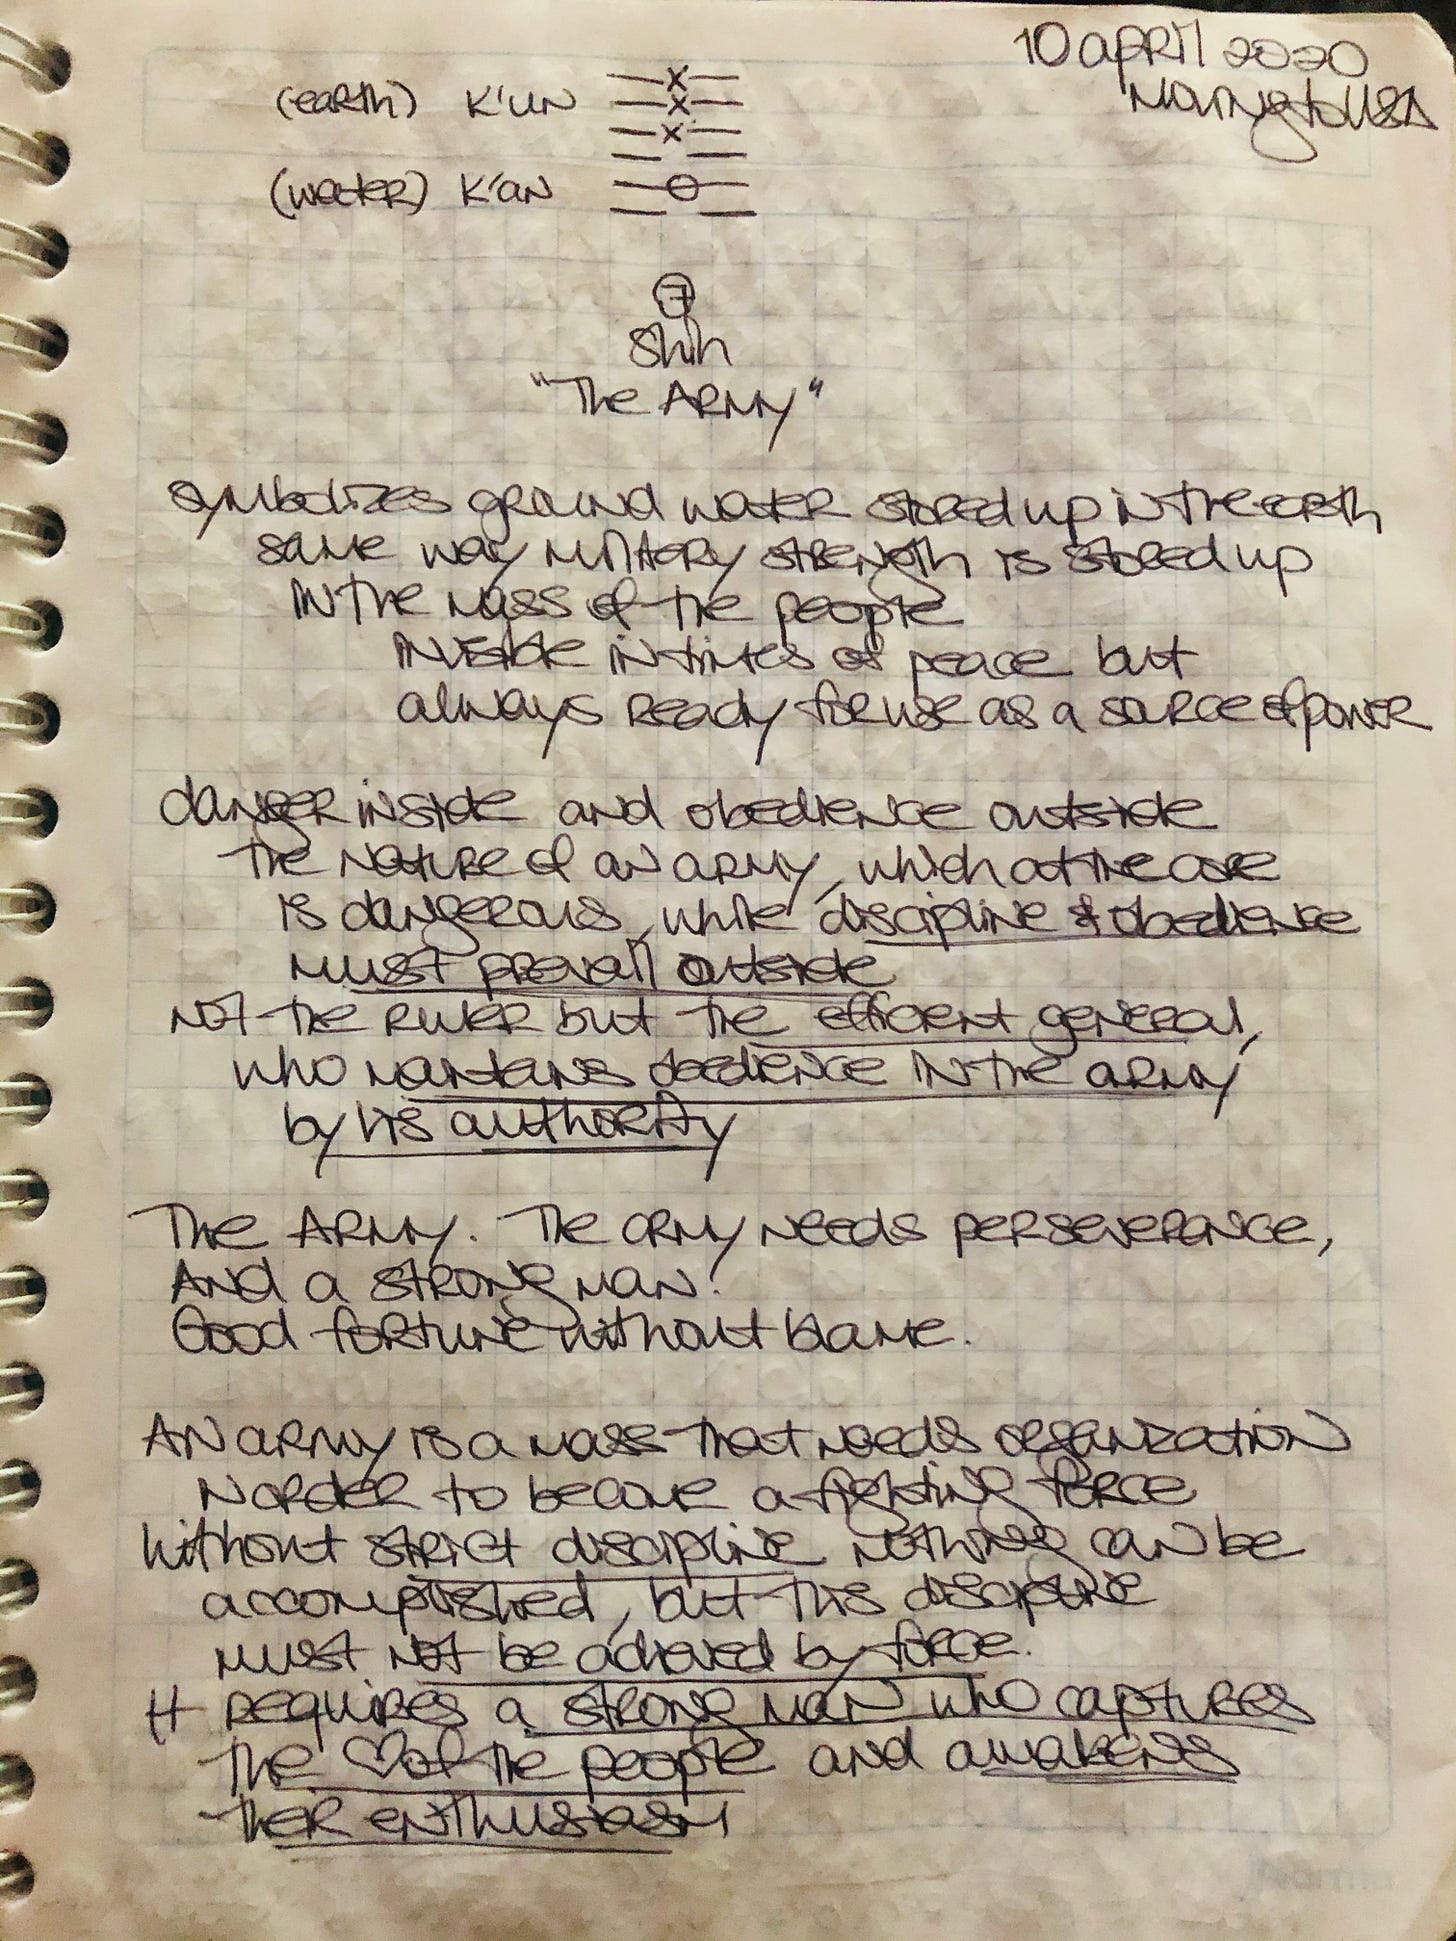 10 april 2020
(earth) K'un
(water) K'an
7
Shih
"The ARMY"
symbolizes ground water stored up in the earth
same way military strength is stored up
in the mass of the people
invisible in times of peace but
always ready for use as a source of power
danger inside and obedience outside
the nature of an army, which at the core
is dangerous, while discipline & obedience
must prevail outside
Not the ruler but the efficient general,
who maintains obedience in the army
by his authority
The Army. The army needs perseverance,
And a strong man.
Good fortune without blame.
An army is a mass that needs organization
in order to become a fighting force
without strict discipline nothing can be
accomplished, but this discipline
must not be achieved by force.
It requires a strong man who captures
the ♡ of the people and awakens
their enthusiasm
Norma